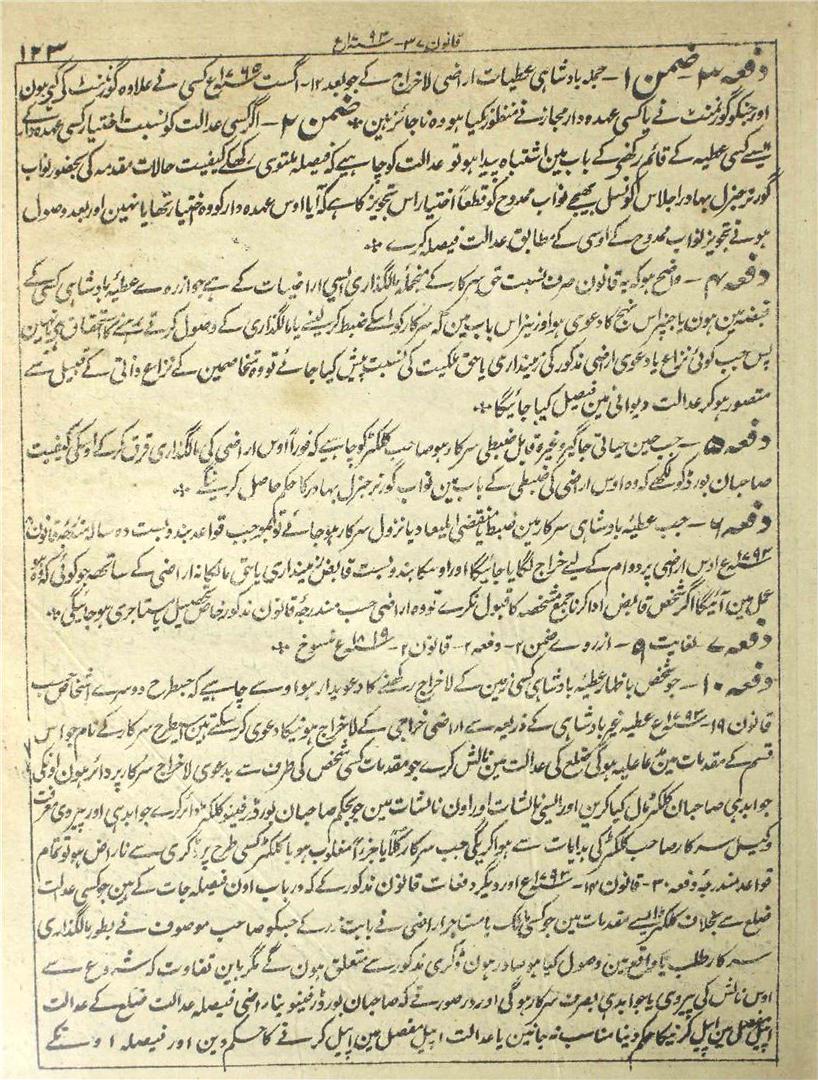 قانون ۳۷-۱۷۹۳ ستہ ع
۱۲۳
دفعہ ۳ - ضمن ۱ - جملہ بادشاہی عطیات اراضی لاخراج کے جو بعد ۱۲- اگست ۱۷۶۵ع کسی نے علاوہ گورنمنٹ کے کئے ہون
اور جنکو گورنمنٹ نے یا کسی عہدہ دار مجاز نے منظور نکیا ہو وہ ناجائز ہین ٭ ضمن ۲ - اگر کسی عدالت کو نسبت اختیار کسی عہدہ دار کے
ایسے کسی عطیہ کے قائم رکھنے کے باب مین اشتباہ پیدا ہو تو عدالت کو چاہیے کہ فیصلہ ملتوی رکھکے کیفیت حالات مقدمہ کی بحضور نواب
گورنر جنرل بہادر اجلاس کونسل بھیجے نواب ممدوح کو قطعاً اختیار اس تجویز کا ہے کہ آیا اوس عہدہ دار کو وہ اختیار تھا یا نہین اور بعد وصول
ہونے تجویز نواب ممدوح کے اوسی کے مطابق عدالت فیصلہ کرے ٭
دفعہ ۴ - واضح ہو کہ یہ قانون صرف نسبت حق سرکار کے منجملہ مالگذاری ایسی اراضیات کے ہے جو ازروے عطیۂ بادشاہی کسی کے
قبضہ مین ہون یا جنپر اس نہج کا دعوی ہو اور نیز اس باب مین کہ سرکار کو اسکے ضبط کر لینے یا مالگذاری کے وصول کرتے رہنے کا استحقاق ہے یا نہین
پس جب کوئی نزاع یا دعوی ارضی مذکور کی زمینداری یا حق ملکیت کی نسبت پیش کیا جائے تو وہ متخاصمین کے نزاع ذاتی کے قبیل سے
متصور ہو کر عدالت دیوانی مین فیصل کیا جائیگا ٭
دفعہ ۵ - جب حین حیاتی جاگیر وغیرہ قابل ضبطی سرکار ہو صاحب کلکٹر کو چاہیے کہ فوراً اوس اراضی کی مالگذاری قرق کرکے اوسکی کیفیت
صاحبان بورڈ کو لکھے کہ وہ اوس اراضی کی ضبطی کے باب مین نواب گورنر جنرل بہادر کا حکم حاصل کرینگے ٭
دفعہ ۶ - جب عطیہ بادشاہی سرکار مین ضبط یا منقضی المیعاد یا نزول سرکار ہو جائے تو بموجب قواعد بندوبست دہ سالہ مندرجۂ قانون ۸
۱۷۹۳ع اوس اراضی پر دوام کے لیے خراج لگایا جائیگا اور اوسکا بندوبست قابض زمینداری یا حق مالکانہ اراضی کے ساتھ جو کوئی کہ ہو
عمل مین آئیگا اگر شخص قابض ادا کرنا جمع مشخصہ کا قبول نکرے تو وہ اراضی حسب مندرجۂ قانون مذکور خاص تحصیل یا مستاجری ہو جائیگی ٭
دفعہ ۷ لغایت ۹ - ازروے ضمن ۲- دفعہ ۲- قانون ۲- ۱۸۱۹ع منسوخ ٭
دفعہ ۱۰ - جو شخص باظہار عطیۂ بادشاہی کسی زمین کے لاخراج رکھنے کا دعویدار ہو اوسے چاہیے کہ جسطرح دوسرے اشخاص حسب
قانون ۱۹- ۱۷۹۳ع عطیہ غیر بادشاہی کے ذریعہ سے اراضی خراجی کے لاخراج ہونیکا دعوی کر سکتے ہین اسیطرح سرکار کے نام جو اس
قسم کے مقدمات مین مدعا علیہ ہوگی ضلع کی عدالت مین نالش کرے جو مقدمات کسی شخص کی طرف سے بدعوی لاخراج سرکار پر دائر ہون اونکی
جوابدہی صاحبان کلکٹر مال کیا کرین اور ایسی نالشات اور اون نالشات مین جو بحکم صاحبان بورڈ رفینو کلکٹر دائر کرے جوابدہی اور پیروی معرفت
وکیل سرکار صاحب کلکٹر کی ہدایات سے ہوا کریگی جب سرکار کلاً یا جزءً مغلوب ہو یا کلکٹر کسی طرح پر ڈگری سے ناراض ہو تو تمام
قواعد مندرجۂ دفعہ ۳۰- قانون ۱۴- ۱۷۹۳ع اور دیگر دفعات قانون مذکور کے کہ درباب اون فیصلہ جات کے ہین جو کسی عدالت
ضلع سے بخلاف کلکٹر ایسے مقدمات مین جو کسی مالک یا مستاجر اراضی نے بابت زر کے جسکو صاحب موصوف نے بطور مالگذاری
سرکار طلب یا واقع مین وصول کیا ہو صادر ہون ڈگری مذکور سے متعلق ہون گے مگر باین تفاوت کہ شروع سے
اوس نالش کی پیروی یا جوابدہی بصرف سرکار ہوگی اور در صورتے کہ صاحبان بورڈ رفینو بناراضی فیصلہ عدالت ضلع کے عدالت
اپیل مفصل مین اپیل کرنیکا حکم دینا مناسب نہ جانین یا عدالت اپیل مفصل مین اپیل کرنے کا حکم دین اور فیصلہ اوسکے